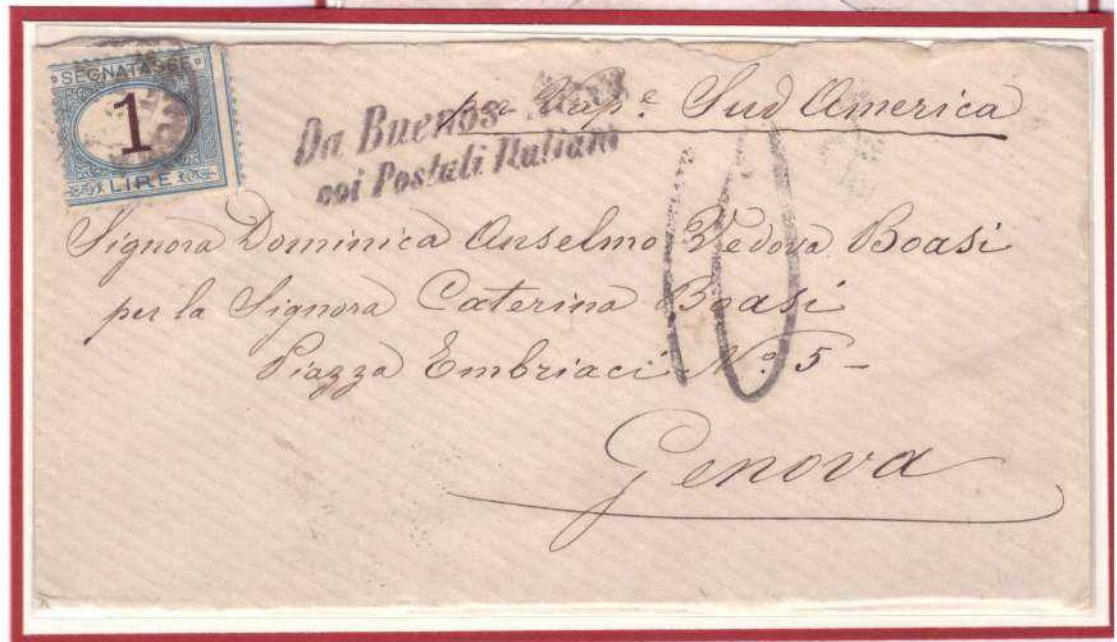 SEGNATASSE
1
LIRE
Da Buenos
coi Postali Italiani
Sud America
Signora Dominica Anselmo Vedova Boasi
per la Signora Caterina Boasi
Piazza Embriaci Nº 5 -
Genova
10